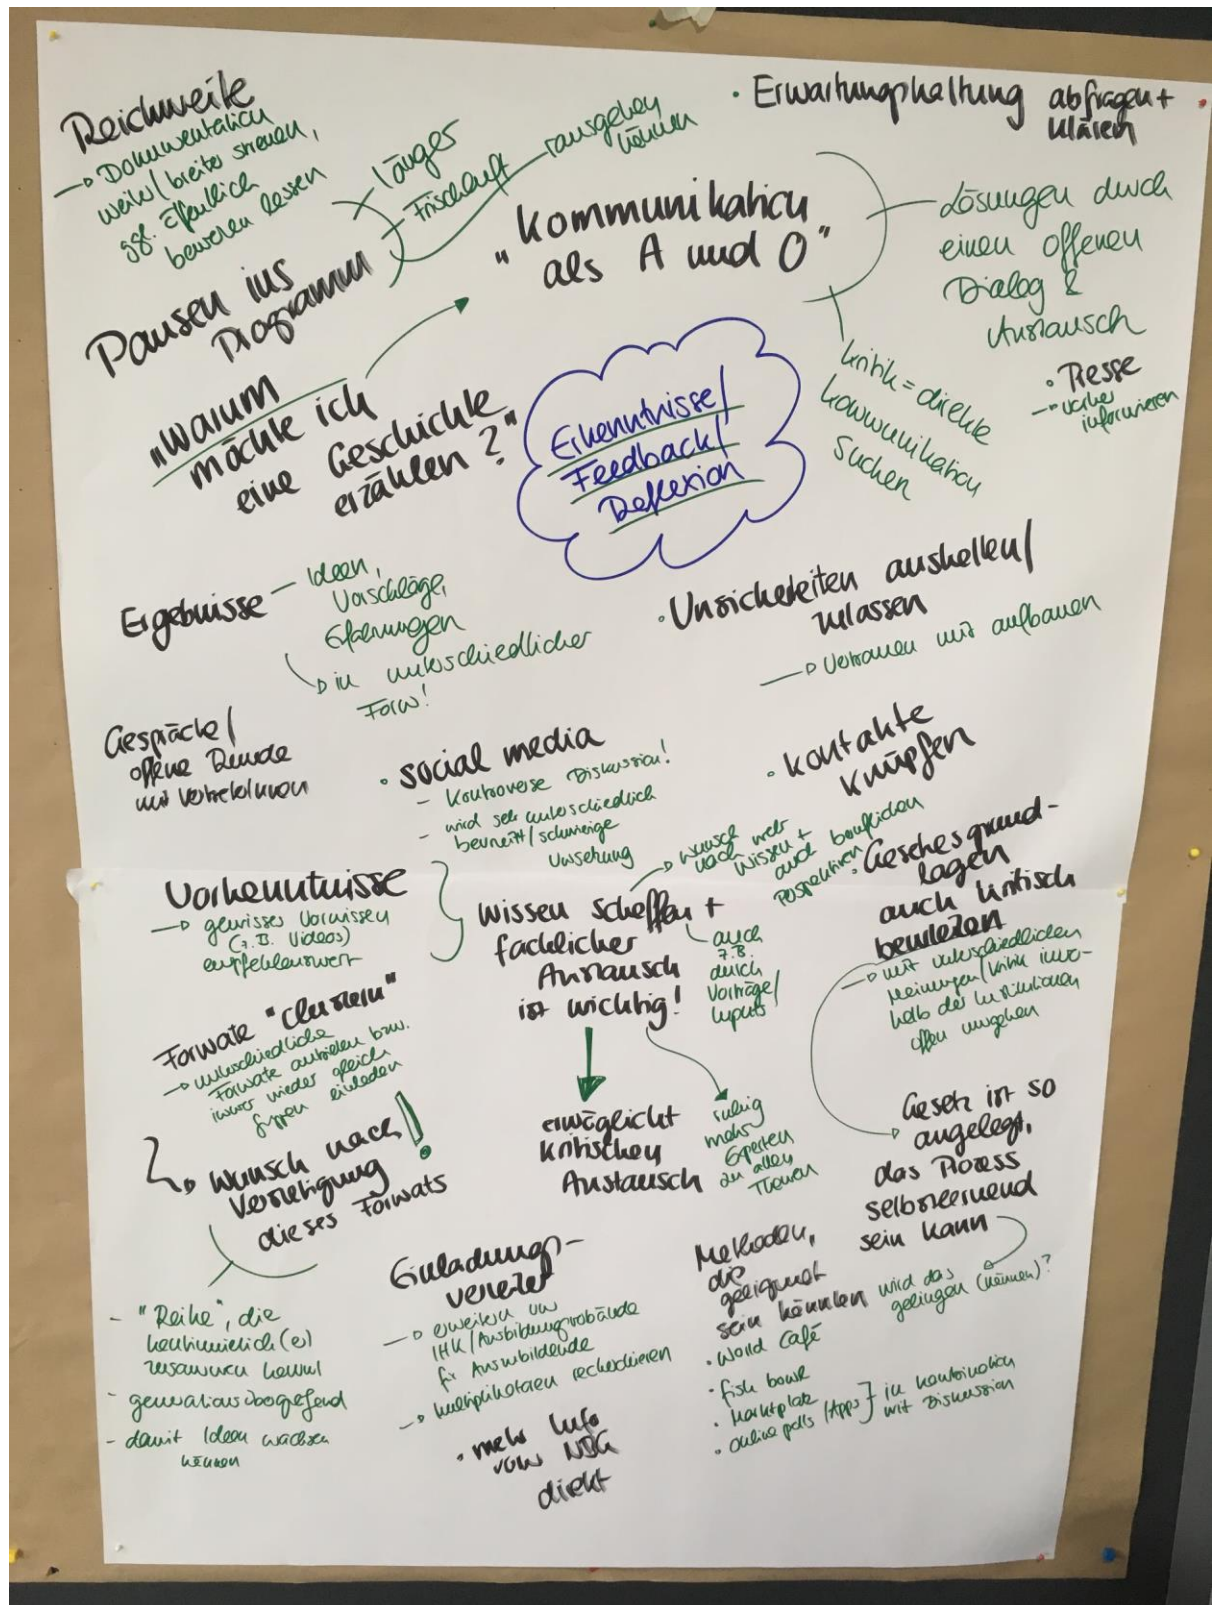 Reichweite
→ Dokumentation
weiter/breiter streuen,
ggf. öffentlich
bewerben lassen
Pausen ins
Programm
länger
Frischluft
rausgehen
können
"Warum
möchte ich
eine Geschichte
erzählen?"
"Kommunikation
als A und O"
• Erwartungshaltung abfragen +
klären
Lösungen durch
einen offenen
Dialog &
Austausch
Kritik = direkte
Kommunikation
suchen
• Presse
→ vorher
informieren
Erkenntnisse/
Feedback/
Reflexion
Ergebnisse
Ideen,
Vorschläge,
Erfahrungen
→ in unterschiedlicher
Form!
• Unsicherheiten aushalten/
zulassen
→ Vertrauen mit aufbauen
Gespräche/
offene Runde
mit VertreterInnen
• social media
- Kontroverse Diskussion!
- wird sehr unterschiedlich
bewertet/schwierige
Umsetzung
• Kontakte
knüpfen
Vorkenntnisse
→ gewisses Vorwissen
(z.B. Videos)
empfehlenswert
Wissen schaffen +
fachlicher
Austausch
ist wichtig!
→ Wunsch
nach mehr
Wissen +
auch beruflichen
Perspektiven
auch
z.B.
durch
Vorträge/
Inputs
• Gesetzesgrund-
lagen
auch kritisch
beurteilen
→ mit unterschiedlichen
Meinungen/Kritik inner-
halb der Institutionen
offen umgehen
Formate "clustern"
→ unterschiedliche
Formate anbieten bzw.
immer wieder gleich
Gruppen einladen
→ Wunsch nach
Verstetigung
dieses Formats
!
ermöglicht
kritischen
Austausch
ruhig
mehr
Experten
zu allen
Themen
Gesetz ist so
angelegt,
das Prozess
selbstlernend
sein kann
wird das
gelingen (können)?
- "Reihe", die
kontinuierlich(er)
zusammen kommt
- generationsübergreifend
- damit Ideen wachsen
können
Einladungs-
verteiler
→ erweitern um
IHK/Ausbildungsverbände
für Auszubildende
→ Multiplikatoren recherchieren
• mehr Info
vom NBG
direkt
Methoden,
die
geeignet
sein könnten
• World Café
• fish bowl
• Marktplatz
• Online polls/Apps
in Kombination
mit Diskussion